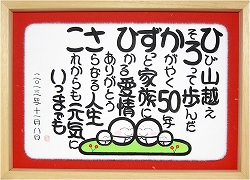 ひび山越え
そろって歩んだ
かがやく50年
ずっと家族に
ひかる愛情
ありがとう
さらなる人生
これからも元気に
いつまでも
二〇一三年十一月八日